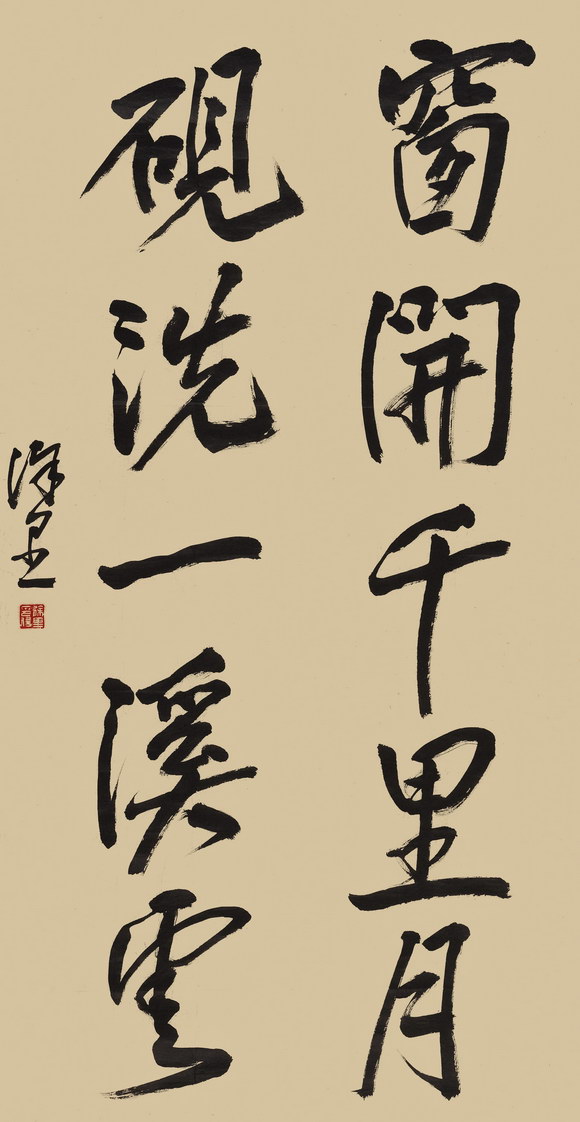 窗開千里月
硯洗一溪雲